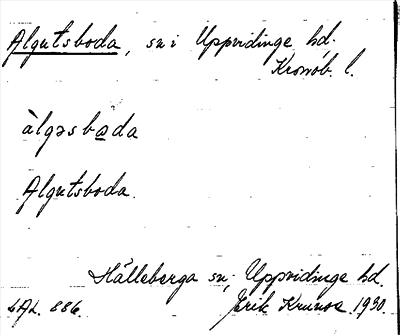 Algutsboda, sn i Uppvidinge hd.
Kronob. l.
àlgəsbơda
Algutsboda.
Hälleberga sn, Uppvidinge hd.
LAL. 886. Erik Kruuse 1930.